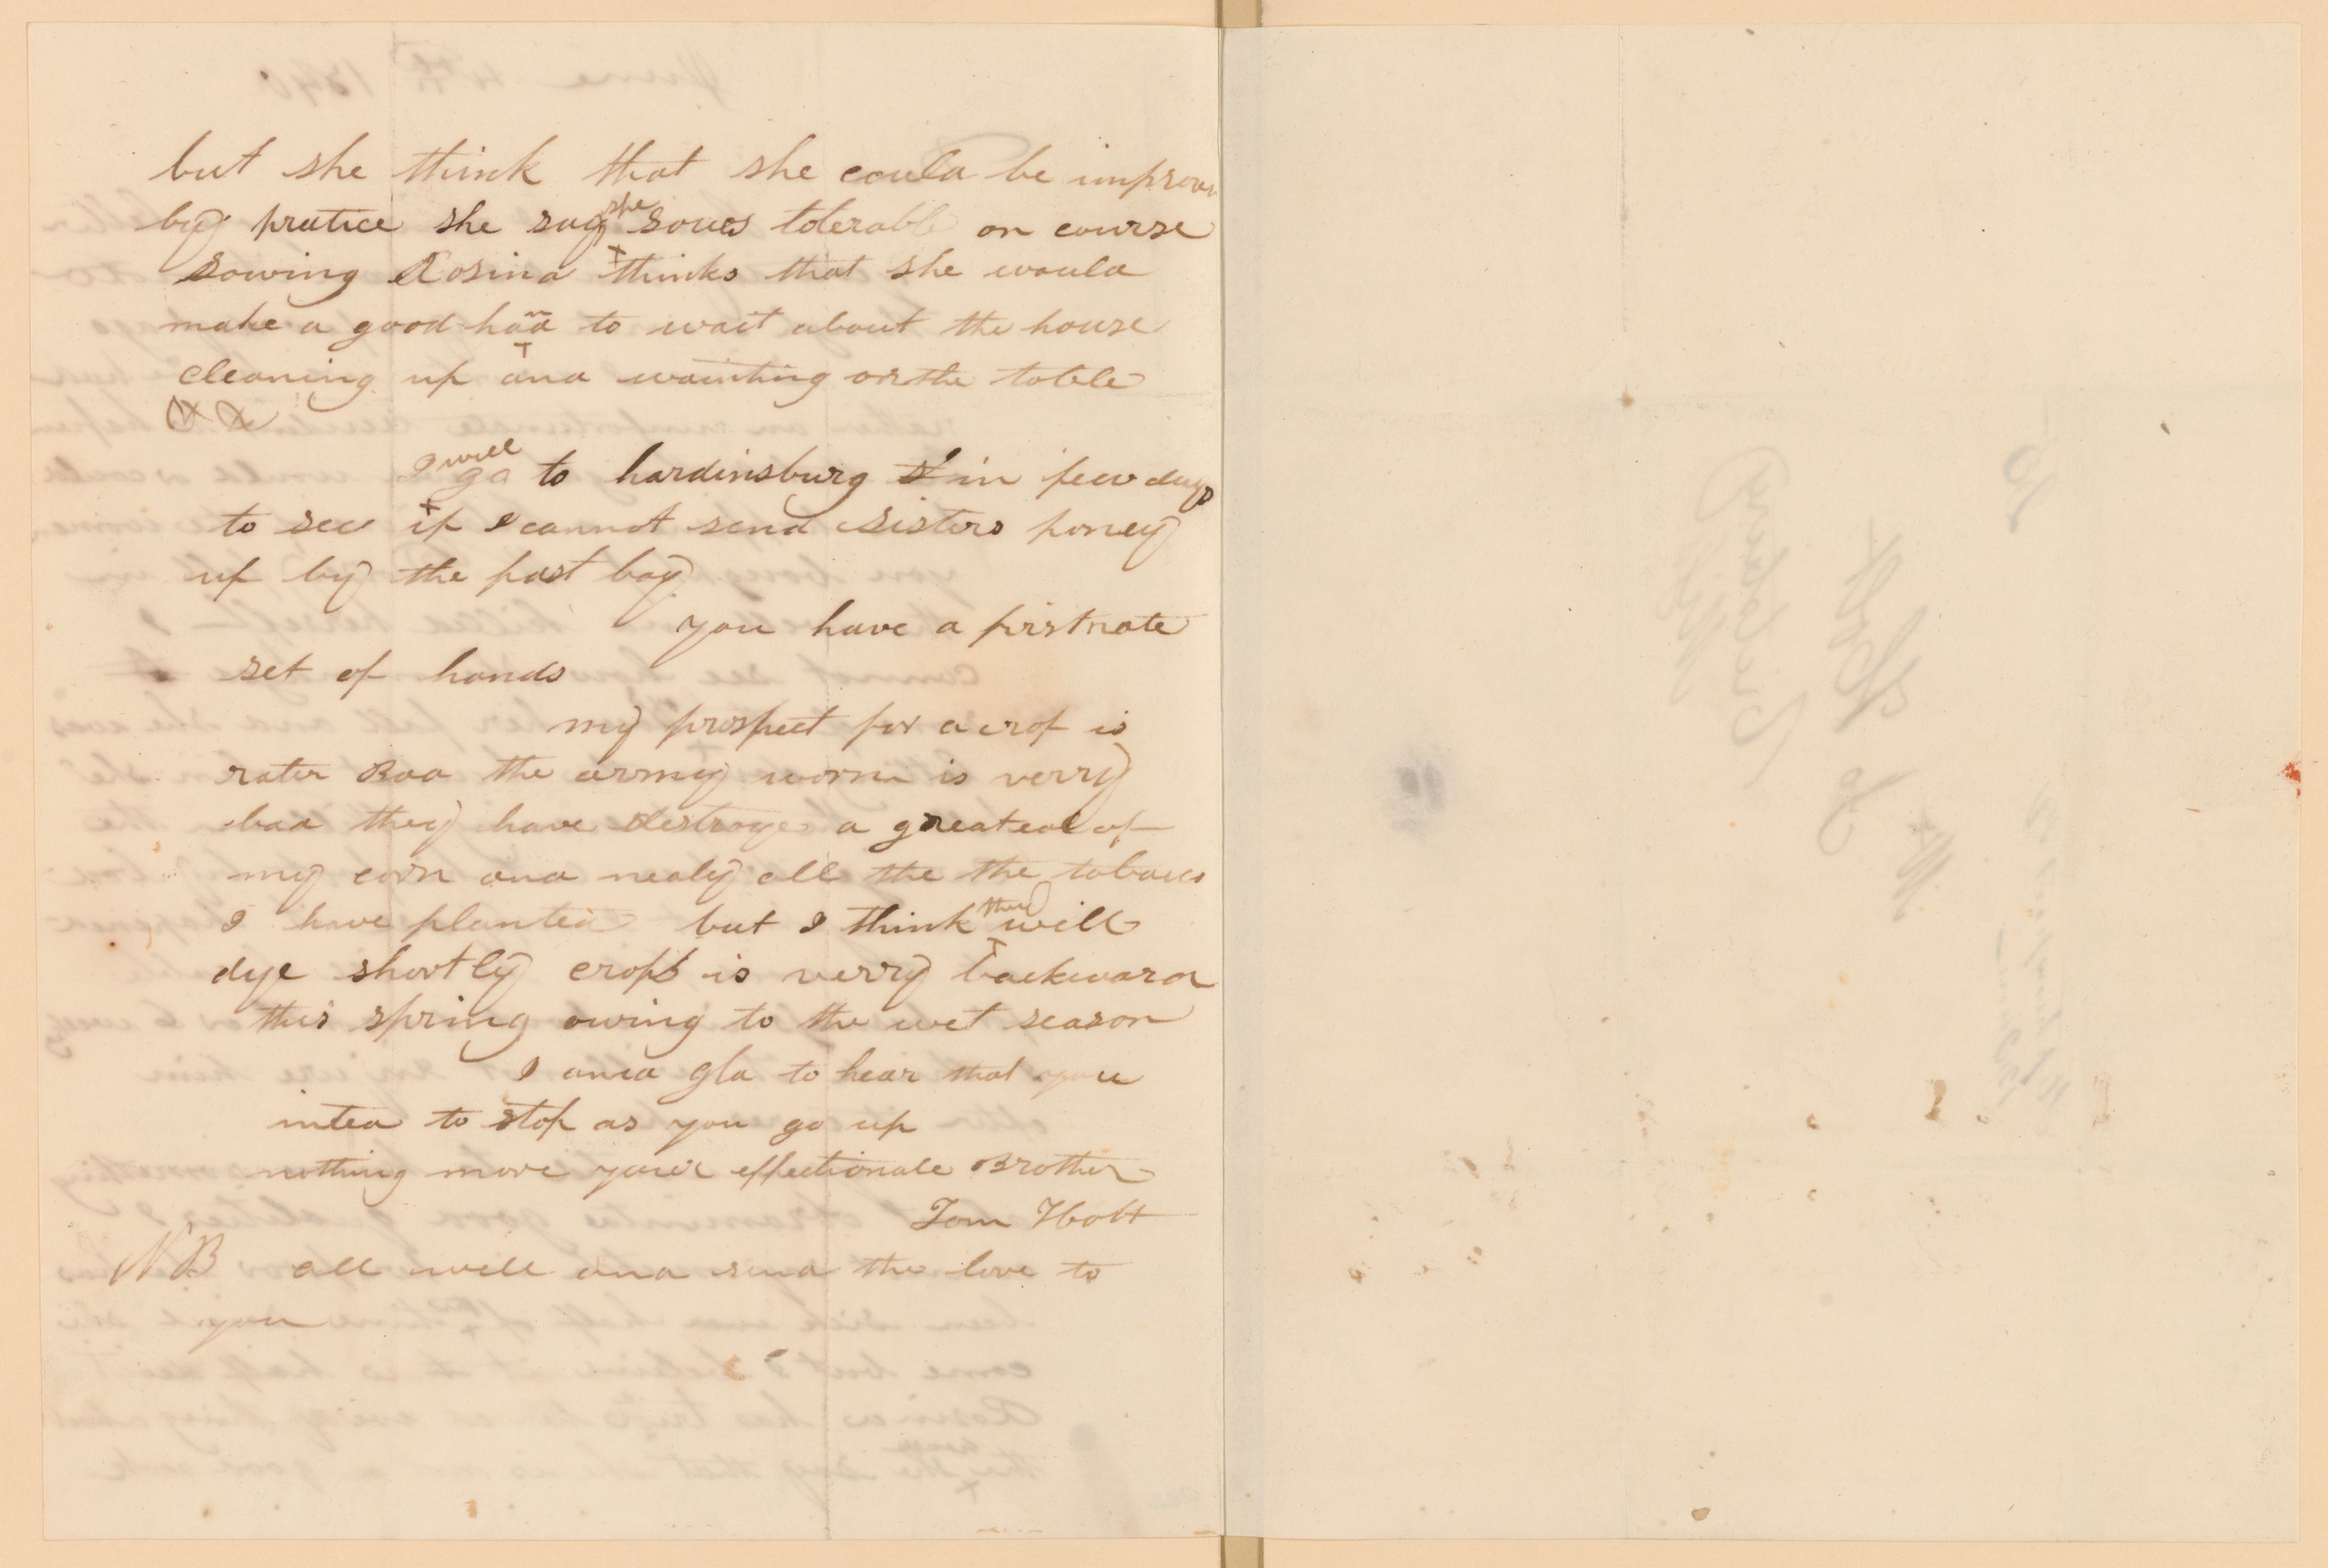 but she think that she could be improv
by pratice she say she sows tolerable on course
sowing Rosina thinks that she would
make a good hand to wait about the house
cleaning up and wainting on the table
&&
I will go to hardinsburg in few days
to see if I cannot send sisters poney
up by the post boy
you have a firstrate
set of hands
my prospect for a crop is
rater Bad the army worm is verry
bad they have destroye a greateal of
my corn and nealy all the the tobacco
I have planted but I think they will
dye shortly crops is verry backward
this spring owing to the wet season
I am gla to hear that you
inted to stop as you go up
nothing more your effectionale Brother
Tom Holt
NB all well and send the love to
you